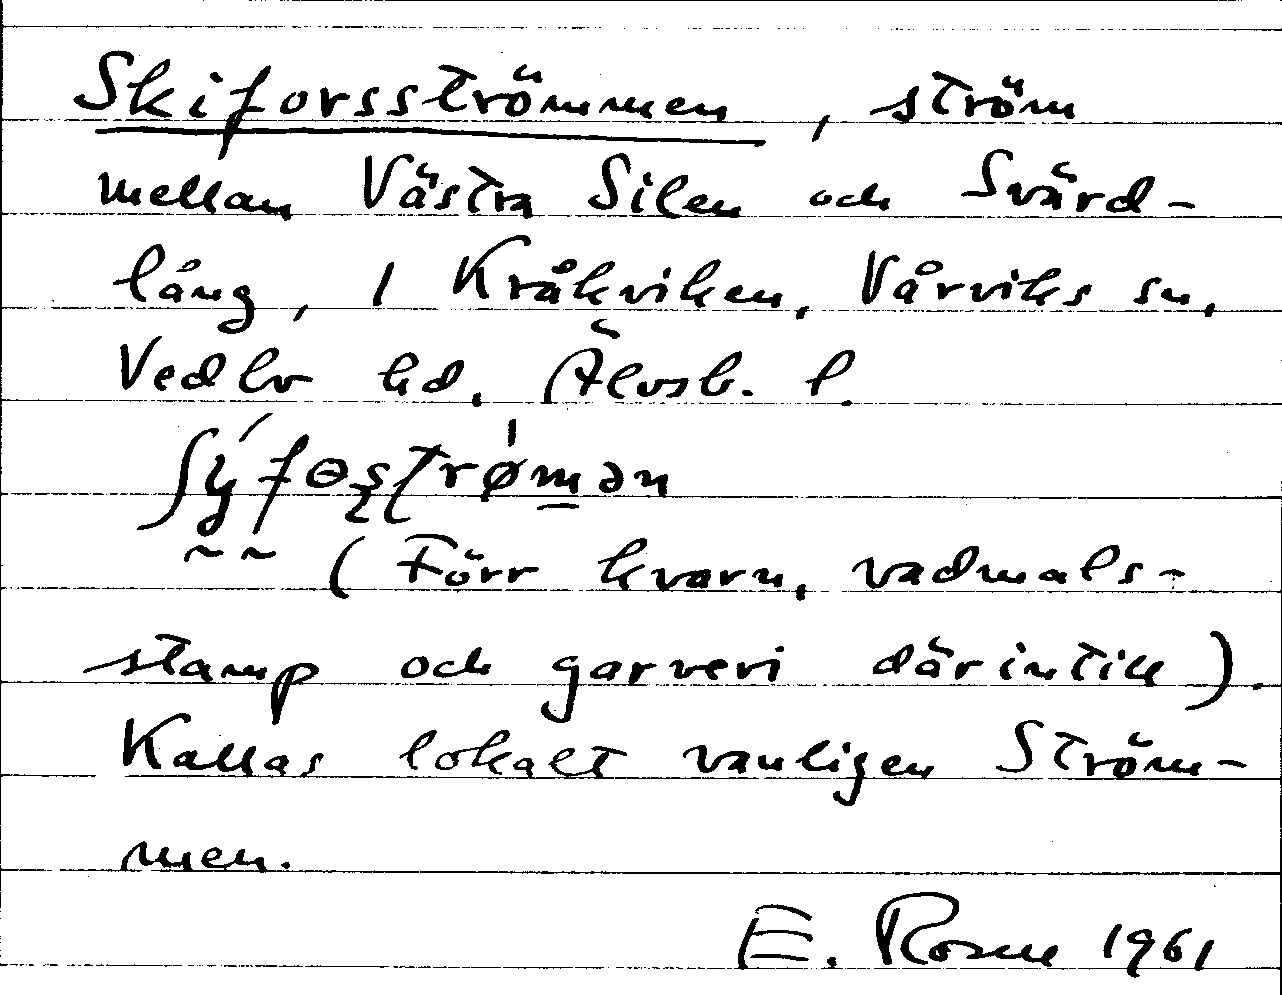 Skiforsströmmen, ström
mellan Västra Silen och Svärd-
lång, i Kråkviken, Vårviks sn,
Vedbo hd, Älvsb. l.
(Förr kvarn, vadmals-
stamp och garveri därintill).
Kallas lokalt vanligen Ström-
men.
E. Rosne 1961